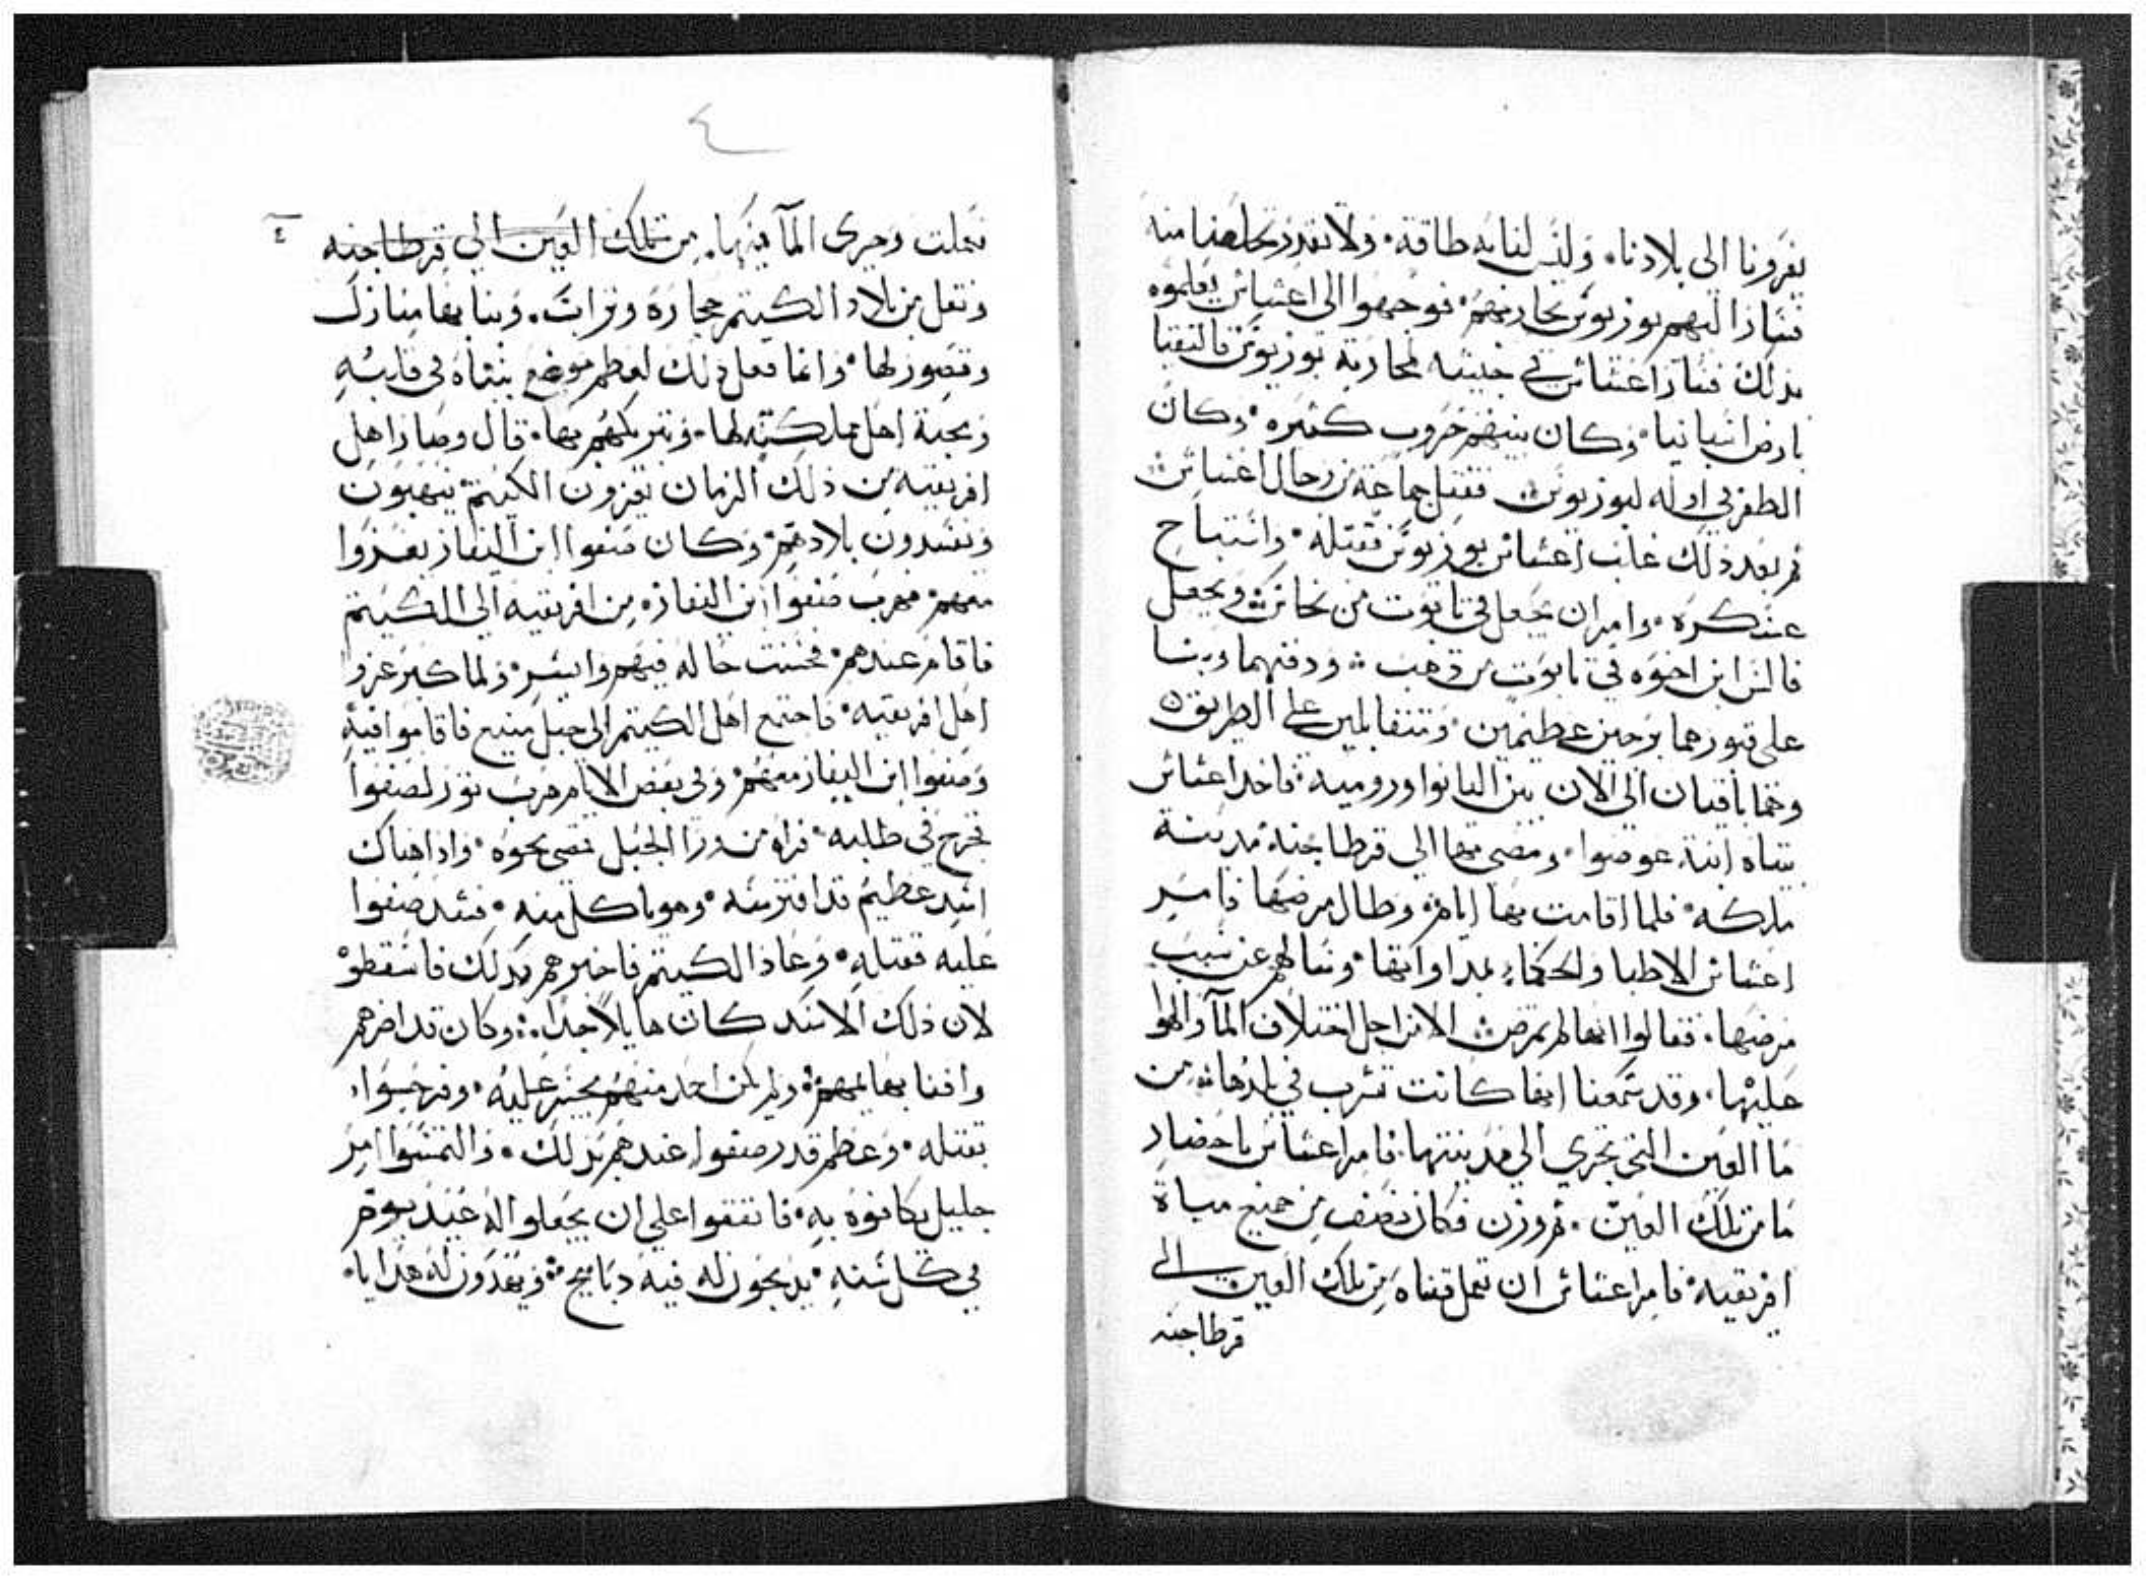 يغزونا الى بلادنا. وليس لنا به طاقة. ولا نقدر تخلصنا منه
فسار اليهم بوزبوش يحاربهم. فوجهوا الى اعنياس يعلموه
بذلك فسار اغنياس في جيشه لمحاربة بوزبوش فالتقيا
بارض انبانيا. وكان بينهم حروب كثيره. وكان
الظفر في اوله لبوزبوش فقتل جماعة من رجال اغنياس
ثم بعد ذلك غلب اغنياس بوزبوش فقتله. واستباح
عسكره. وامر ان يجعل في تابوت من نحاس ويجعل
فالس ابن اخوه في تابوت من ذهب ودفنهما وبنا
على قبورهما برجين عظيمين. ومتقابلين على الطريق
وهما باقيان الى الان بين البانوا ورومية. فاخذ اغنياس
ينياه ابنة عوصوا. ومضى بها الى قرطاجنة مدينة
ملكه. فلما اقامت بها ايام. وطال مرضها فامر
اغنياس الاطبا والحكماء بمداواتها. وسالهم عن سبب
مرضها. فقالوا انها لم تمرض الا من اجل اختلاف المآ والهوا
عليها. وقد سمعنا انها كانت تشرب في بلدها من
مآ العين التي تجري الى مدينتها. فامر اغنياس باحضار
ما من تلك العين. ثم وزن فكان نصف من جميع مياة
افريقية. فامر اغنياس ان تعمل قناه من تلك العين الى
قرطاجنه
٤
٤
فعملت وجرى المآ فيها. من تلك العين الى قرطاجنه
ونقل من بلاد الكيتم حجارة وتراب. وبنا بها منازل
وقصور لها. وانما فعل ذلك لعظم موضع ينياه في قلبه
ومحبة اهل مملكته لها. وتبركهم بها. قال وصار اهل
افريقيه من ذلك الزمان يغزون الكيتم ينهبون
ويفسدون بلادهم. وكان صنفوا ابن اليفاز يغزوا
معهم. فهرب صنفوا ابن اليفازه من افريقيه الى الكيتم
فاقام عندهم. فحسنت حاله فيهم وايسر. ولما كبر غزو
اهل افريقيه. فاجتمع اهل الكيتم الى جبل منيع فاقاموا فيه
وصنفوا ابن اليفاز معهم. وفي بعض الايام هرب ثور لصنفوا
فخرج في طلبه. فراه من ورا الجبل فمضى نحوه. واذا هناك
اسد عظيم قد افترسه. وهو ياكل منه. فشد صنفوا
عليه فقتله. وعاد الكيتم فاخبرهم بذلك فاستعظموا
لان ذلك الاسد كان هايلا جدا. وكان قد اضرهم
وافنا بهايمهم. ولم يكن احد منهم يجسر عليه. وفرحوا
بقتله. وعظم قدر صنفوا عندهم بذلك. والتمسوا امر
جليل يكافوه به. فاتفقوا على ان يجعلوا له عيد يوم
في كل سنه. يذبحون له فيه دبايح. ويقدون له هدايا.